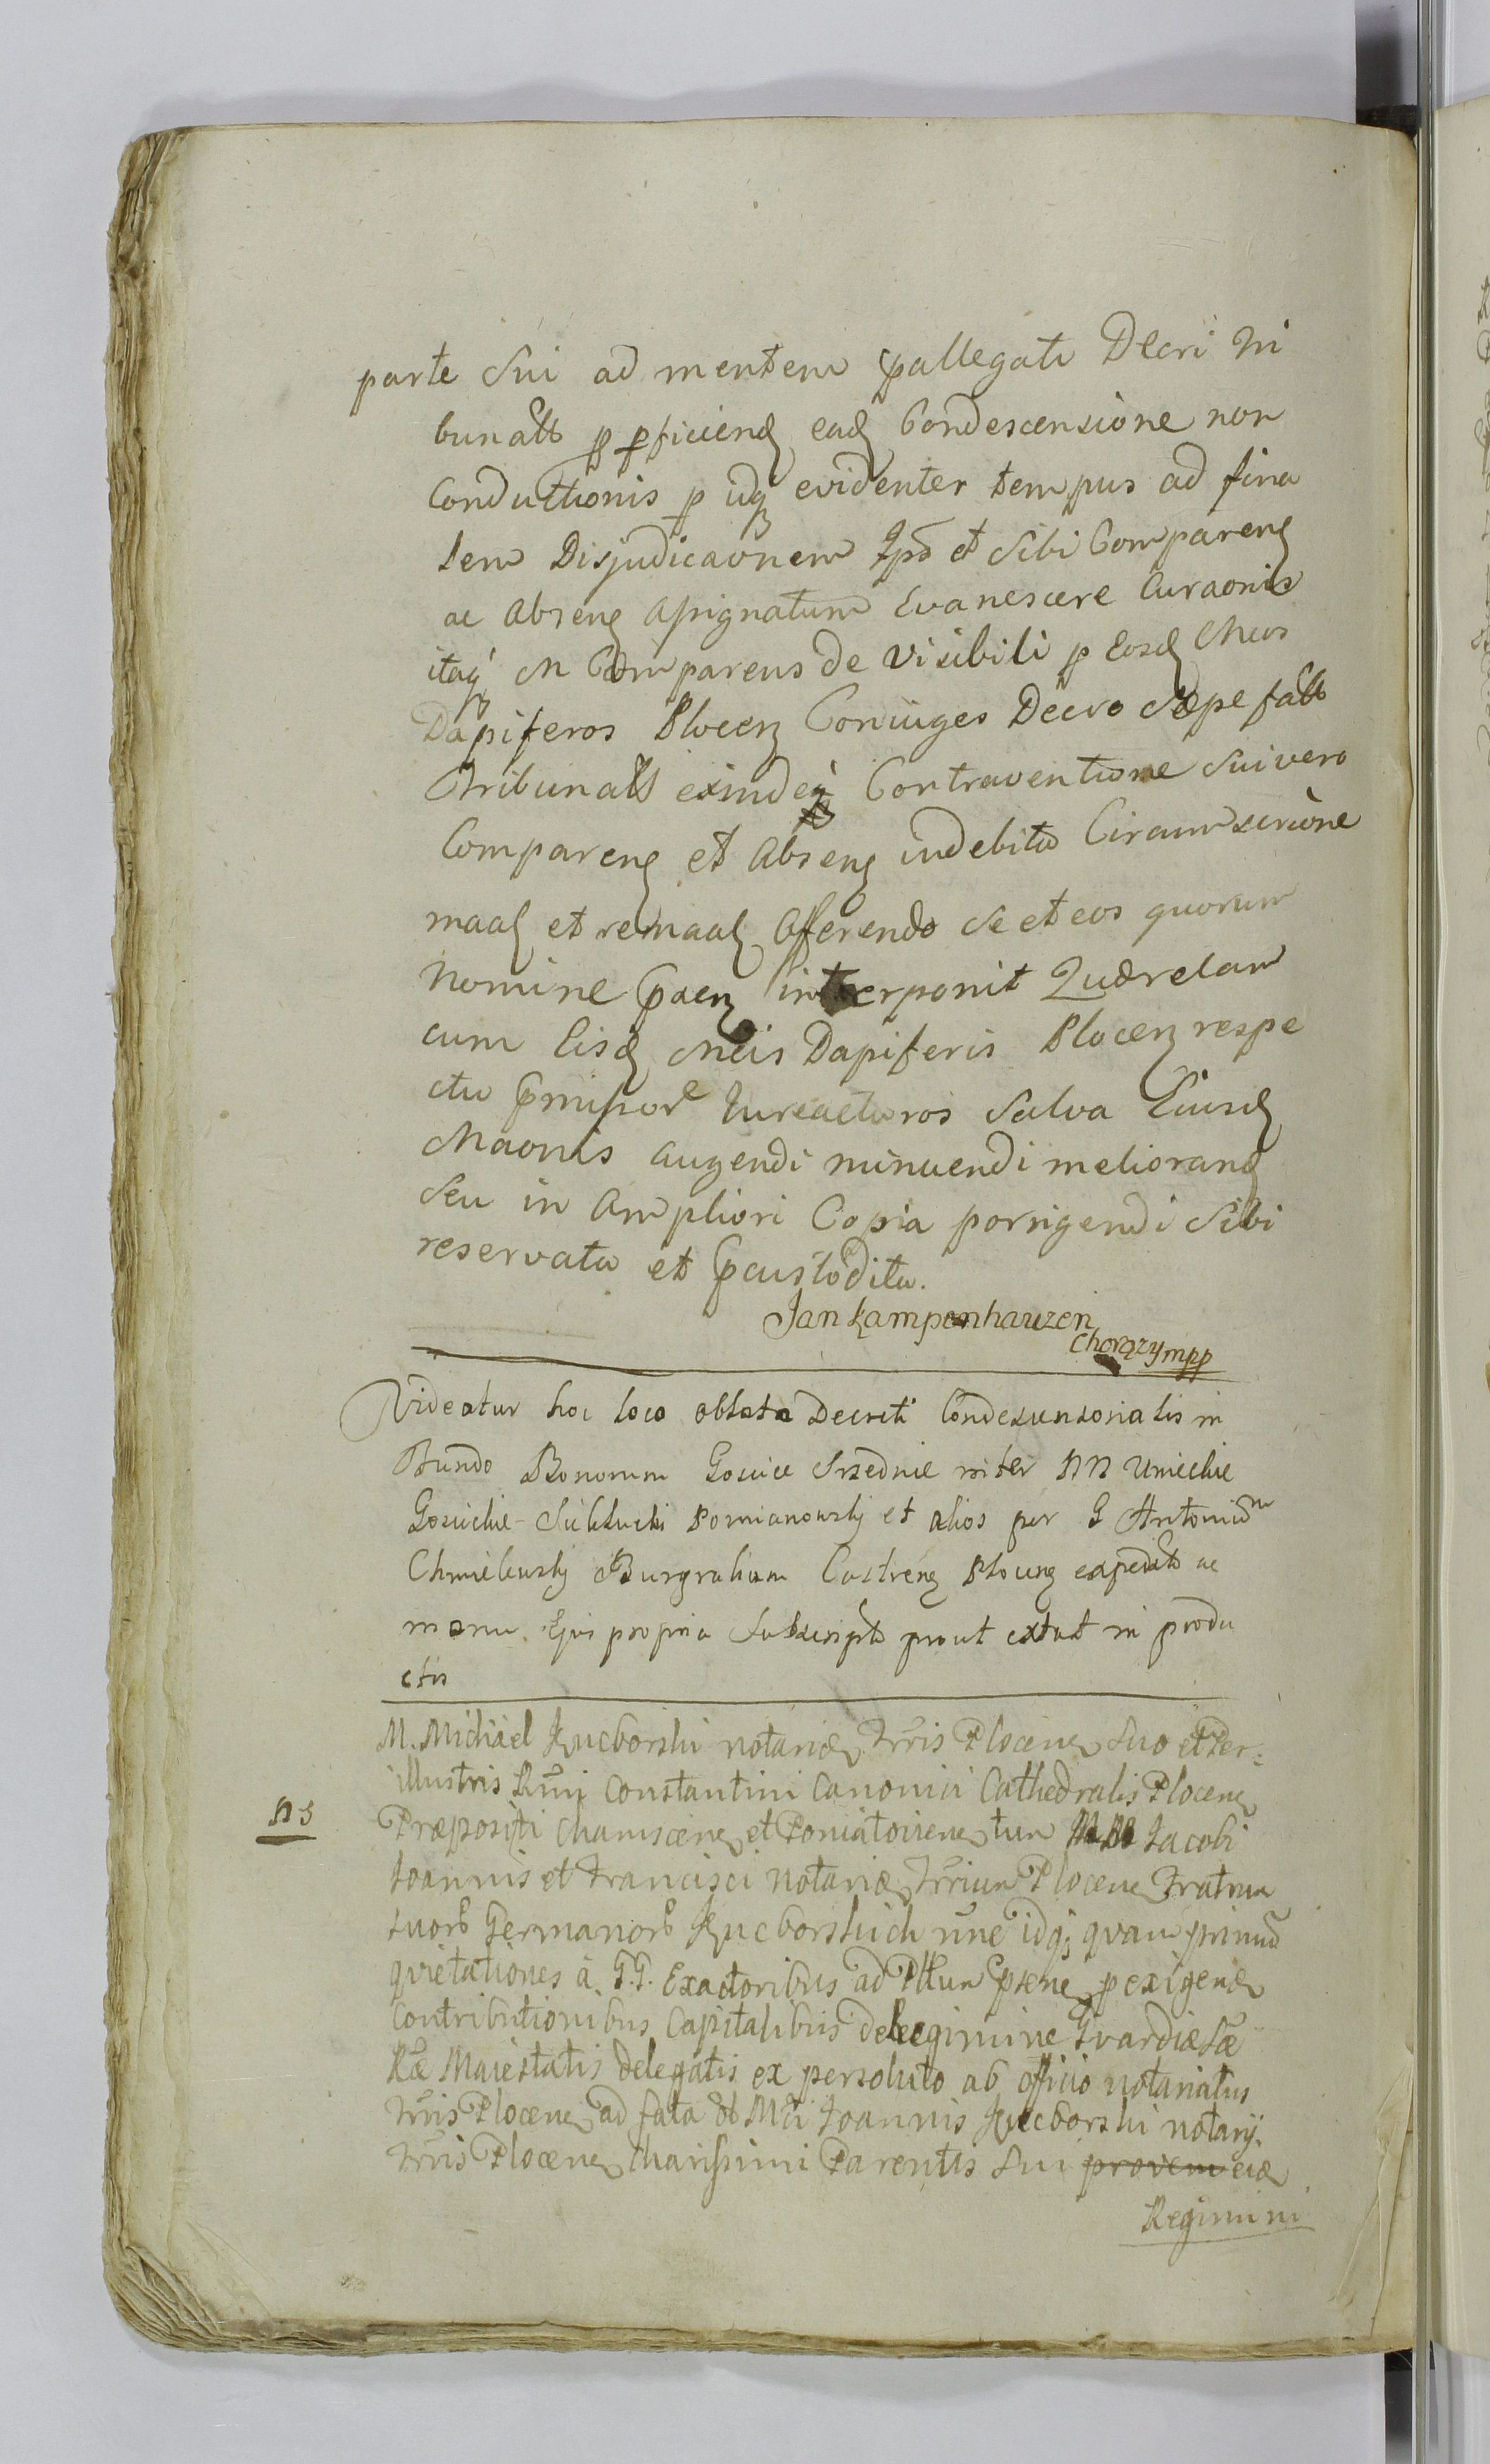 parte Sui ad mentem pallegati Decri Tri
bunalis p pficiend ead Condescensione non
Conductionis p idq evidenter tempus ad fina
lem Disjudicaonem Ips et Sibi Comparen
ac Absen Assignatum Evanescere Curaonis
itaq M Comparens de Visibili p Eosd Mcos
Dapiferos Plocen Coniuges Decro Sæpe fatt
Tribunalis exindeq Contraventione Sui vero
Comparen et Absen indebita Circumscriòne
maal et remaal Offerendo Se et eos quorum
Nomine paen interponit Quærelam
cum Eisd Mcis Dapiferis Plocen respe
ctu pmissor Jureacturos Salva Eiusd
Maonis augendi minuendi meliorand
Seu in Ampliori Copia porrigendi Sibi
reservata et pcustodita.
Jan Kampenhauzen
Chorązy mpp
Videatur hoc loco oblata Decreti Condescensorialis in
Fundo Bonorum Goscice Srzednie inter NN Umieckie
Goscickie Pomianowskj et alios per G Antoniūm
Chmielewskj Burgrabium Castren Plocen expedit ac
manu Ejus propria Subscript prout extat in produ
ctis
M. Michael Kucborski notarid Trris Plocen suo et Per:
illustris Rmi Constantini Canonici Cathedralis Plocen
NS
Præpositi et Poniatovien tum MM Jacobi
Joannis et Francisci notarid Trrium Plocen Fratrum
suorb Germanorb Kucborskich nne idq quam primum
quietationes à G.G. Exactoribus ad Pttum psens p exigend
contributionibus Capitalibus de legimine Gvardiæ Sæ
Ræ Maiestatis delegatis ex persoluto ab officio notariatus
Trris Plocen ad fata ol Mci Joannis Kucborski notarij
Trris Plocen Charissimi Parentis sui provem eid
Regimini